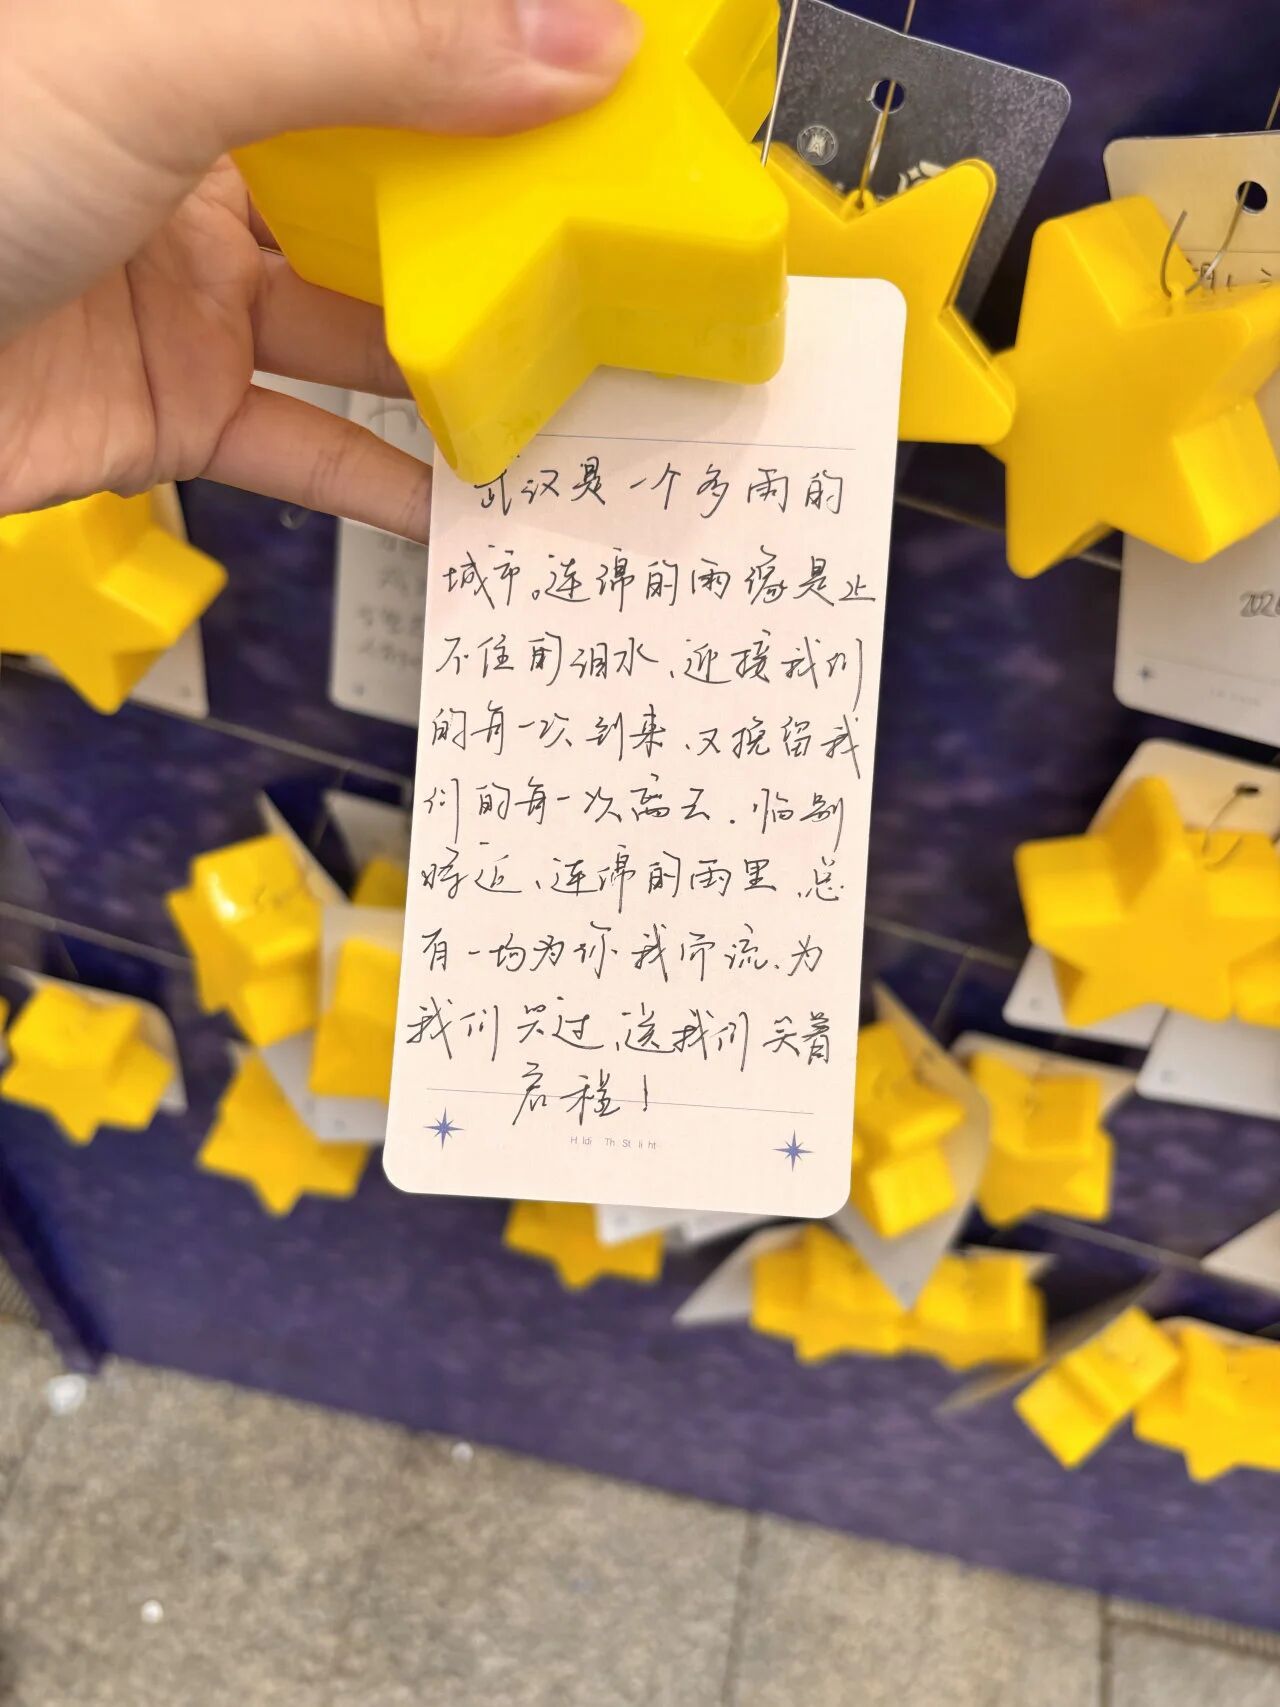 武汉是一个多雨的
城市。连绵的雨像是止
不住的泪水、迎接我们
的每一次到来、又挽留我
们的每一次离去.临别
将近、连绵的雨里、总
有一场为你我而流、为
我们哭过、送我们笑着
启程!